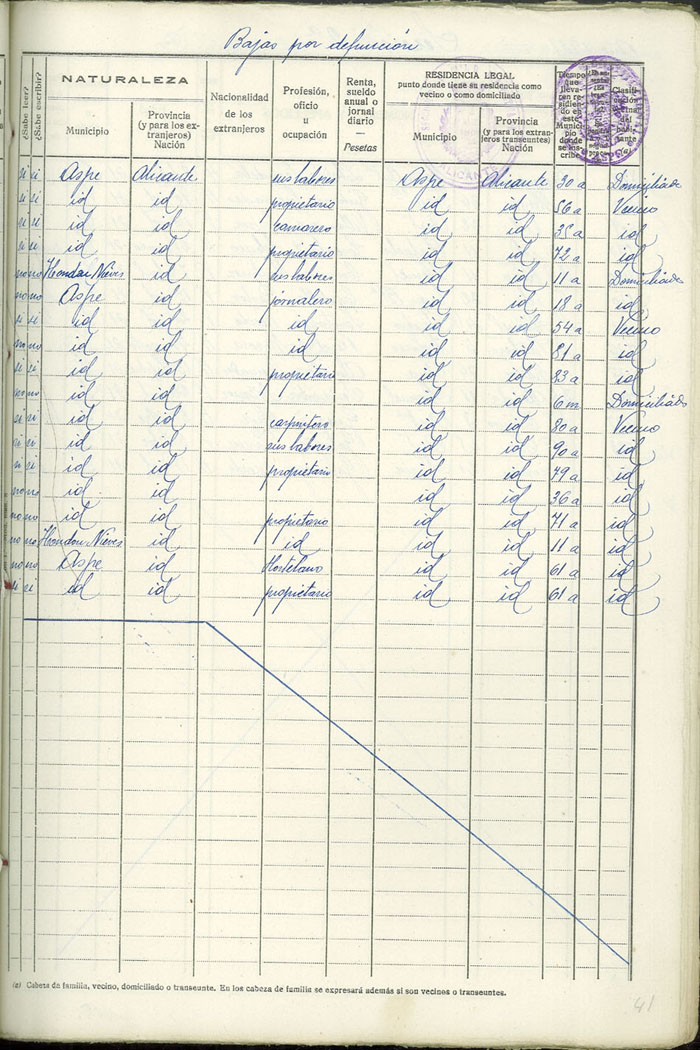 Bajas por defunción
¿Sabe leer? ¿Sabe escribir? NATURALEZA Municipio Provincia (y para los extranjeros) Nación Nacionalidad de los extranjeros Profesión, oficio u ocupación Renta, sueldo anual o jornal diario — Pesetas RESIDENCIA LEGAL punto donde tiene su residencia como vecino o como domiciliado Municipio Provincia (y para los extranjeros transeuntes) Nación Tiempo que llevan residiendo en este Municipio donde se inscribe
si si Aspe Alicante sus labores Aspe Alicante 30 a Domiciliado
si si id id propietario id id 56 a Vecino
si si id id camarero id id 35 a id
si si id id propietario id id 72 a id
no no Hondon Nieves id sus labores id id 11 a Domiciliado
no no Aspe id jornalero id id 18 a id
si si id id id id id 54 a Vecino
no no id id id id id 81 a id
si si id id propietario id id 83 a id
no no id id id id 6 m Domiciliado
si si id id carpintero id id 80 a Vecino
si si id id sus labores id id 90 a id
si si id id propietario id id 49 a id
no no id id id id 36 a id
no no id id propietario id id 71 a id
no no Hondon Nieves id id id id 11 a id
no no Aspe id Hortelano id id 61 a id
si si id id propietario id id 61 a id
(a) Cabeza de familia, vecino, domiciliado o transeunte. En los cabeza de familia se expresará además si son vecinos o transeuntes.
41